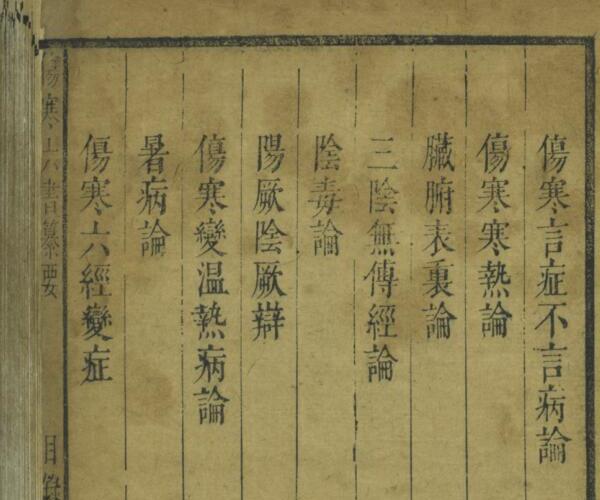 傷寒言症不言病論
傷寒寒熱論
臟腑表裏論
三陰無傳經論
陰毒論
陽厥陰厥辯
傷寒變温熱病論
暑病論
傷寒六經變症
傷寒六書纂要
目錄